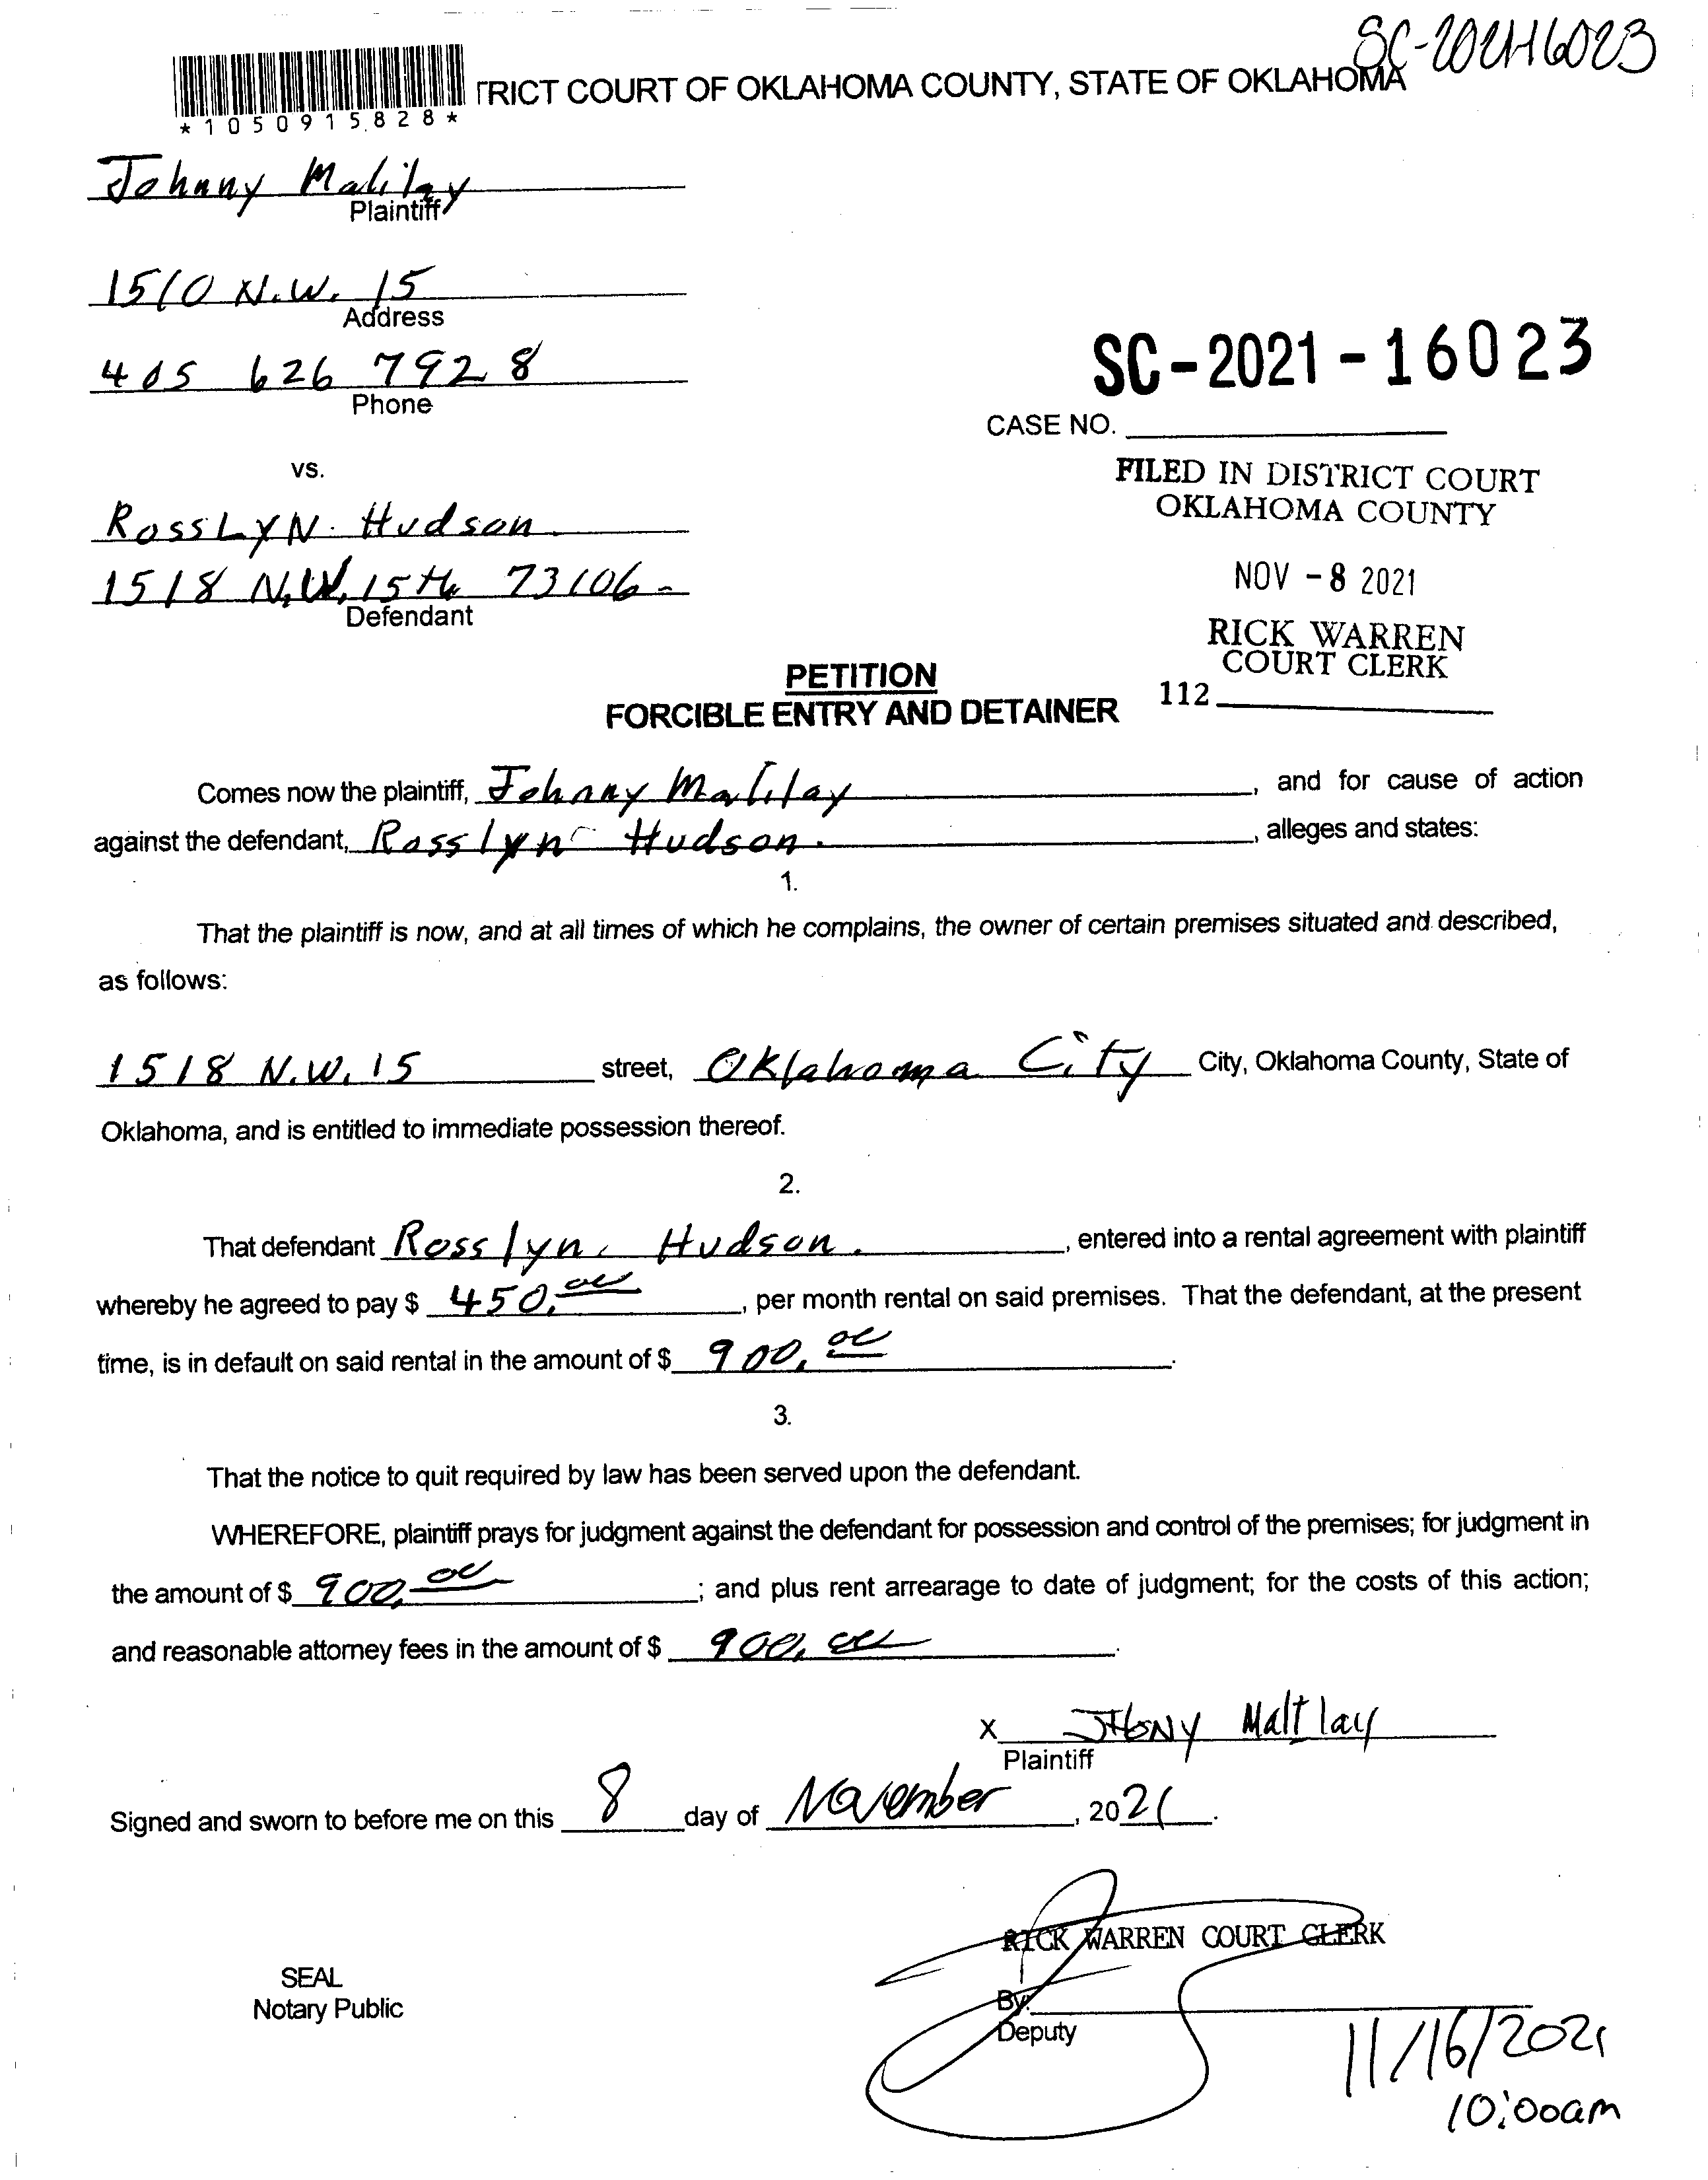 SC-2021-16023
TRICT COURT OF OKLAHOMA COUNTY, STATE OF OKLAHOMA
*1050915828*
Johnny Malilay
Plaintiff
1510 N.W. 15
Address
405 626 7928
Phone
SC-2021-16023
CASE NO.
vs.
FILED IN DISTRICT COURT
OKLAHOMA COUNTY
RossLYN Hudson
1518 N.W. 15th 73106-
Defendant
NOV -8 2021
RICK WARREN
COURT CLERK
112
PETITION
FORCIBLE ENTRY AND DETAINER
Comes now the plaintiff, Johnny Malilay, and for cause of action
against the defendant, Rosslyn Hudson., alleges and states:
1.
That the plaintiff is now, and at all times of which he complains, the owner of certain premises situated and described,
as follows:
1518 N.W. 15 street, Oklahoma City City, Oklahoma County, State of
Oklahoma, and is entitled to immediate possession thereof.
2.
That defendant Rosslyn Hudson., entered into a rental agreement with plaintiff
whereby he agreed to pay $ 450.00, per month rental on said premises. That the defendant, at the present
time, is in default on said rental in the amount of $ 900.00.
3.
That the notice to quit required by law has been served upon the defendant.
WHEREFORE, plaintiff prays for judgment against the defendant for possession and control of the premises; for judgment in
the amount of $ 900.00; and plus rent arrearage to date of judgment; for the costs of this action;
and reasonable attorney fees in the amount of $ 900.00.
X
Plaintiff
Signed and sworn to before me on this 8 day of November, 2021.
RICK WARREN COURT CLERK
SEAL
Notary Public
By:
Deputy
11/16/2021
10:00am